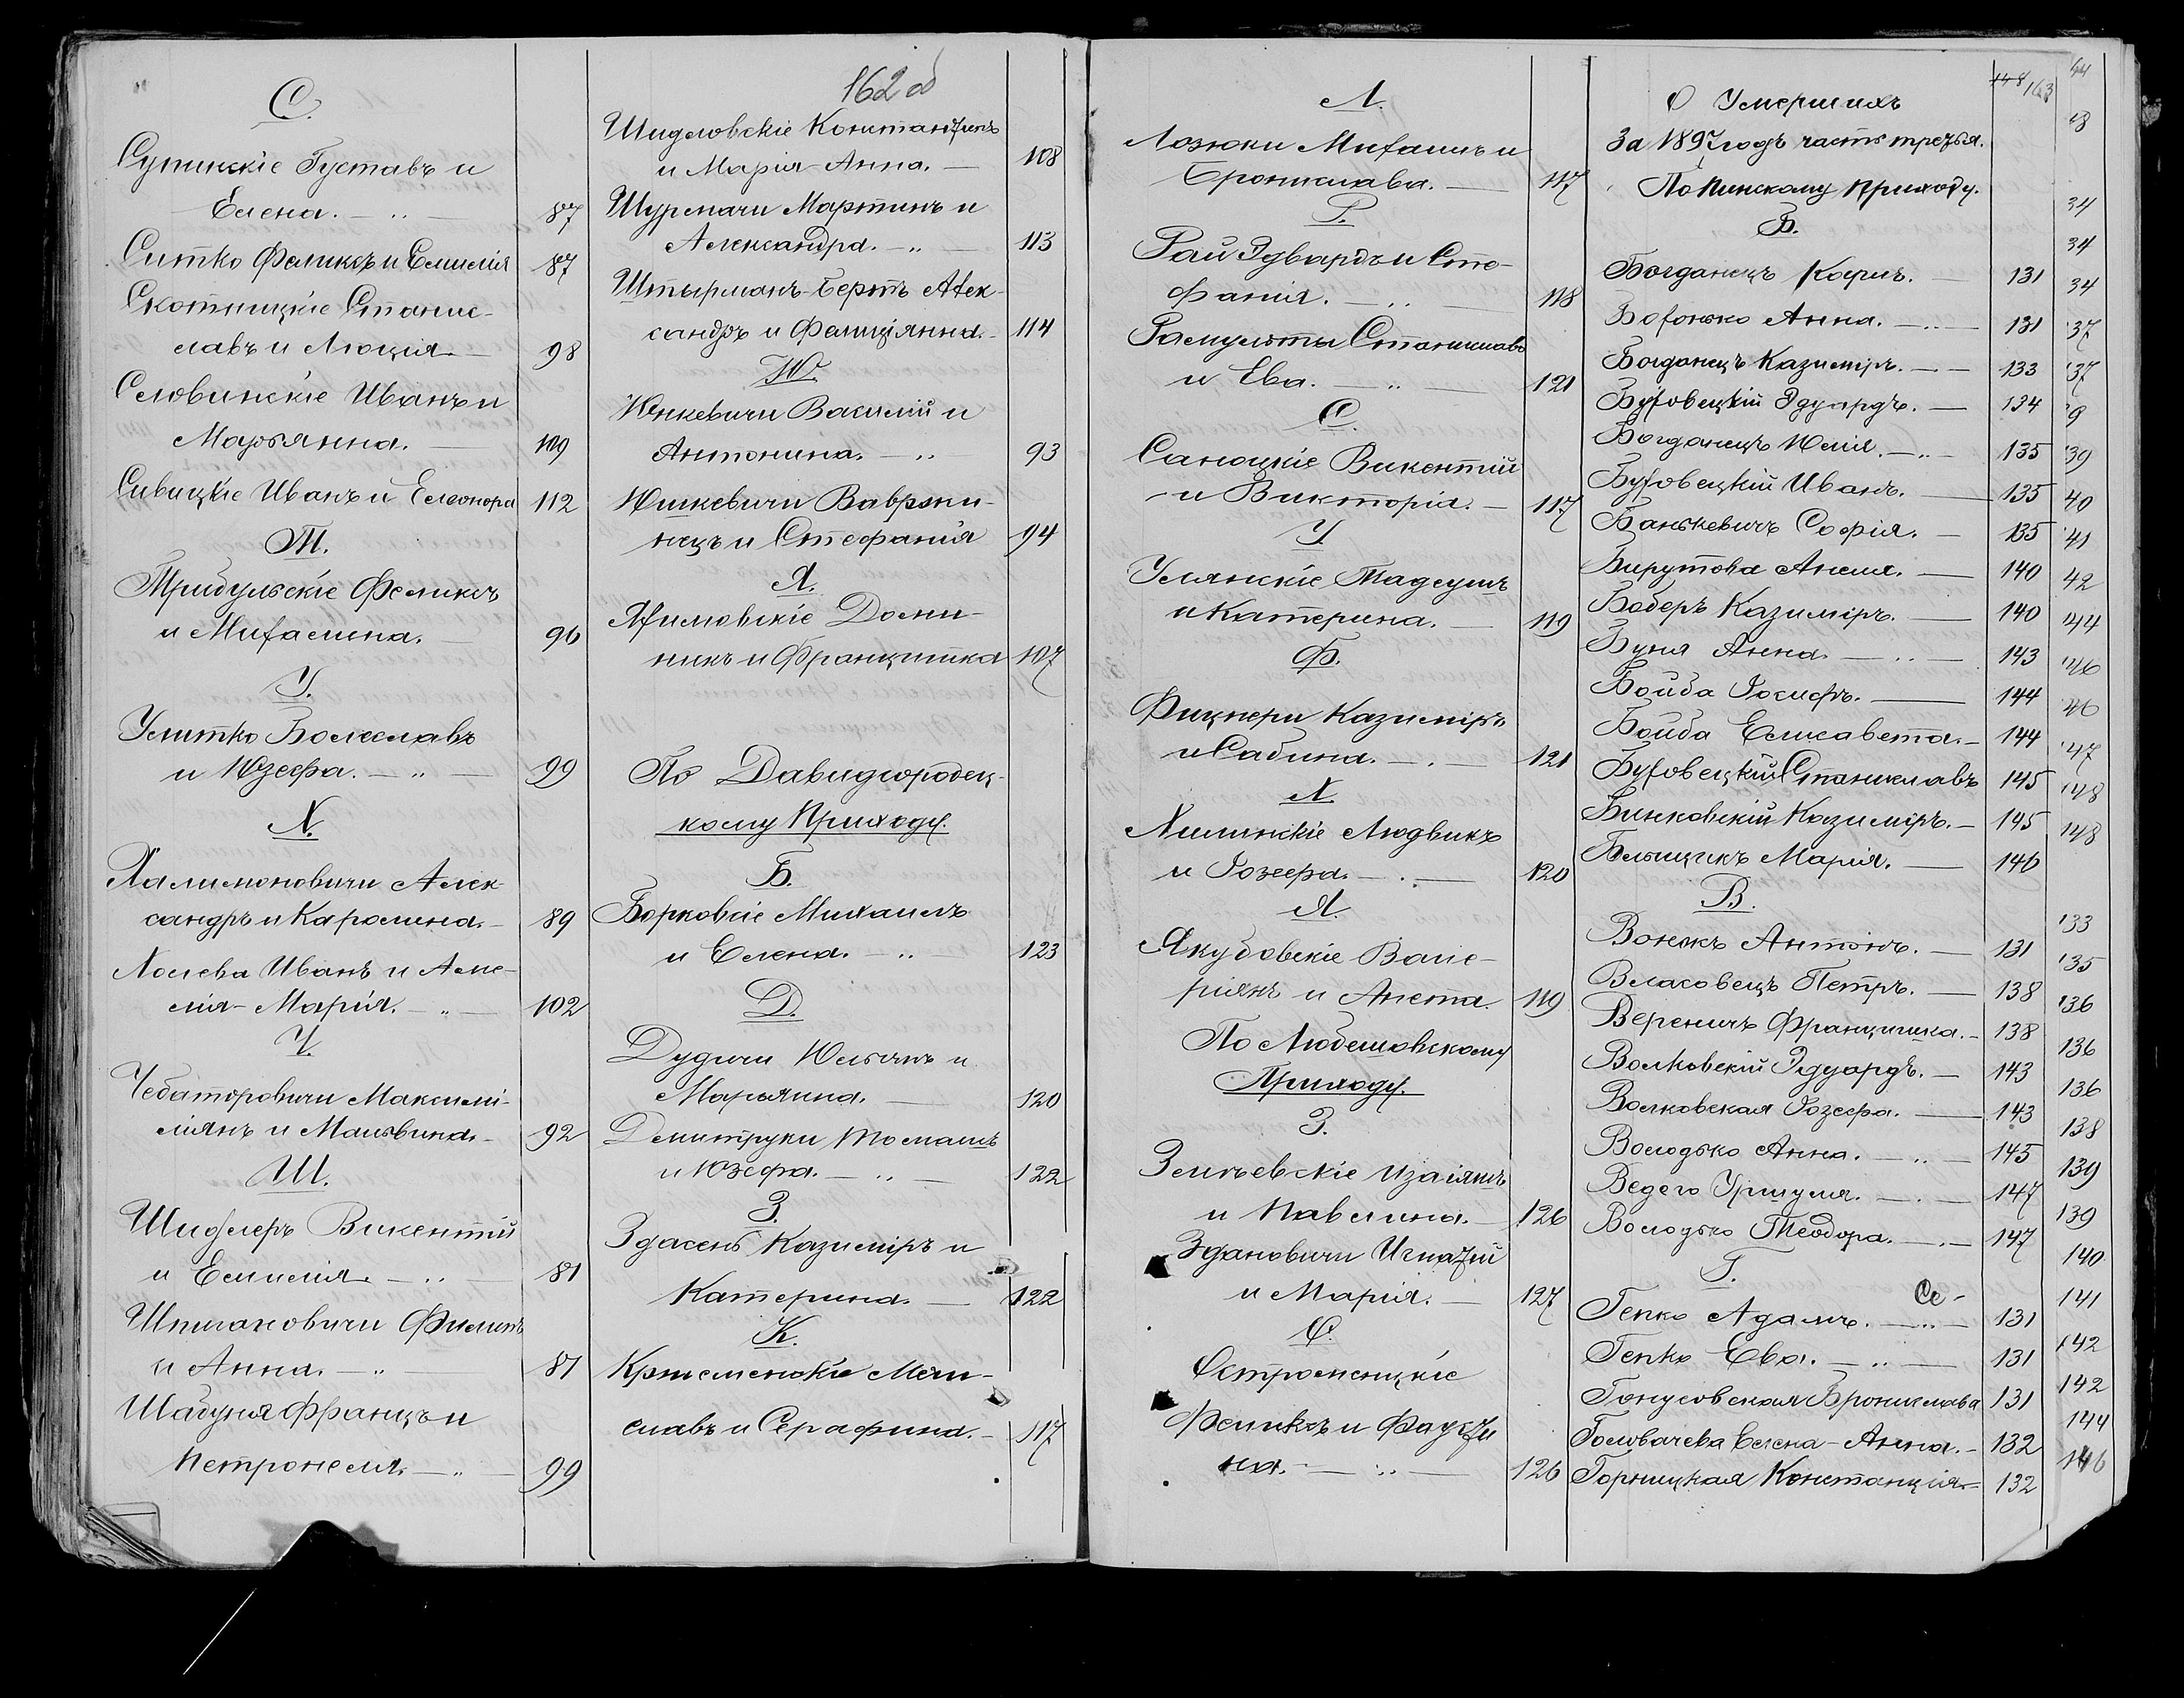 162 об
С.
Супинскіе Густавъ и
Елена. — „ — 87
Ситко Феликсъ и Емилія 87
Скотницкіе Станис-
лавъ и Люція — 98
Словинскіе Иванъ и
Марьянна. — 109
Сивицкіе Иванъ и Елеонора 112
Т.
Трибульскіе Феликсъ
и Михалина. 96
У.
Улитко Болеславъ
и Юзефа. — „ — 99
Х.
Халимоновичи Алек-
сандръ и Каролина. — 89
Холева Иванъ и Аме-
лія-Марія. — „ — 102
Ч.
Чебатаровичи Максими-
ліянъ и Мальвина. — 92
Ш.
Шидлеръ Викентій
и Емилія. — „ — 81
Шпилаковичи Филипъ
и Анна. — „ — 81
Шабуня Францъ и
Петронеля. — „ — 99
Шидловскіе Константинъ
и Марія-Анна. — 108
Шурмачи Мартинъ и
Александра. — „ — 113
Штырманъ-Бертъ Алек-
сандръ и Фелиціянна. — 114
Ю.
Юнкевичи Василій и
Антонина. — „ 93
Юшкевичи Ваврзи-
нецъ и Стефанія 94
Я.
Яхимовскіе Доми-
никъ и Францишка 107
По Давидгородец-
кому Приходу.
Б.
Борковскіе Михаилъ
и Елена. — „ 123
Д.
Дудичи Юльянъ и
Марьянна. — 120
Дмитруки Томашъ
и Юзефа. — „ — 122
З.
Здасень Казиміръ и
Катерина. — 122
К.
Кржеменскіе Мечи-
славъ и Серафина. — 117
Л.
Лозюки Михаилъ и
Бронислава. — 117
Р.
Рай Эдвардъ и Сте-
фанія. — „ — 118
Рамульты Станиславъ
и Ева. — „ — 121
С.
Саноцкіе Викентій
и Викторія. — 117
У
Улянскіе Тадеушъ
и Катерина. — 119
Ф.
Фицнери Казиміръ
и Сабина. — „ — 121
Х
Хилинскіе Людвикъ
и Іозефа. — „ — 120
Я.
Якубовскіе Вале-
ріянъ и Анета. 119
По Любешовскому
Приходу.
З.
Зенчевскіе Изаіяшъ
и Павлина. — 126
Здановичи Игнатій
и Марія. — 127
О.
Остроменцкіе
Феликсъ и Фаусти
на. — „ — 126
148 163
О Умершихъ
За 1897 годъ часть третья.
По Пинскому Приходу.
Б.
Богданецъ Кароль. — 131
Бохонко Анна. — „ — 131
Богданецъ Казиміръ. — — 133
Буховецкій Эдуардъ. — 134
Богданецъ Юлія. — „ — 135
Буховецкій Иванъ. — 135
Банькевичъ Софія. — 135
Бирутова Анеля. — 140
Боберъ Казиміръ. — 140
Буня Анна. — „ — 143
Бойба Іосифъ. — 144
Бойба Елисавета. — 144
Буховецкій Станиславъ 145
Бинковскій Казиміръ. — 145
Бельщикъ Марія. — 146
В.
Вонжъ Антонъ. — 131
Власовецъ Петръ. — 138
Вереничъ Францишка. — 138
Волковскій Эдуардъ. — 143
Волковская Іозефа. — 143
Володько Анна. — „ — 145
Ведего Уршуля. — „ — 147
Володько Теодора. — „ — 147
Г.
Гепко Адамъ. — „ — 131
Гепко Ева. — „ — 131
Гонусовская Бронислава 131
Головачева Елена-Анна. — 132
Горницкая Констанція. — 132
34
34
34
37
37
39
40
41
42
44
46
46
47
148
148
133
135
136
136
136
138
139
139
140
141
142
142
144
146